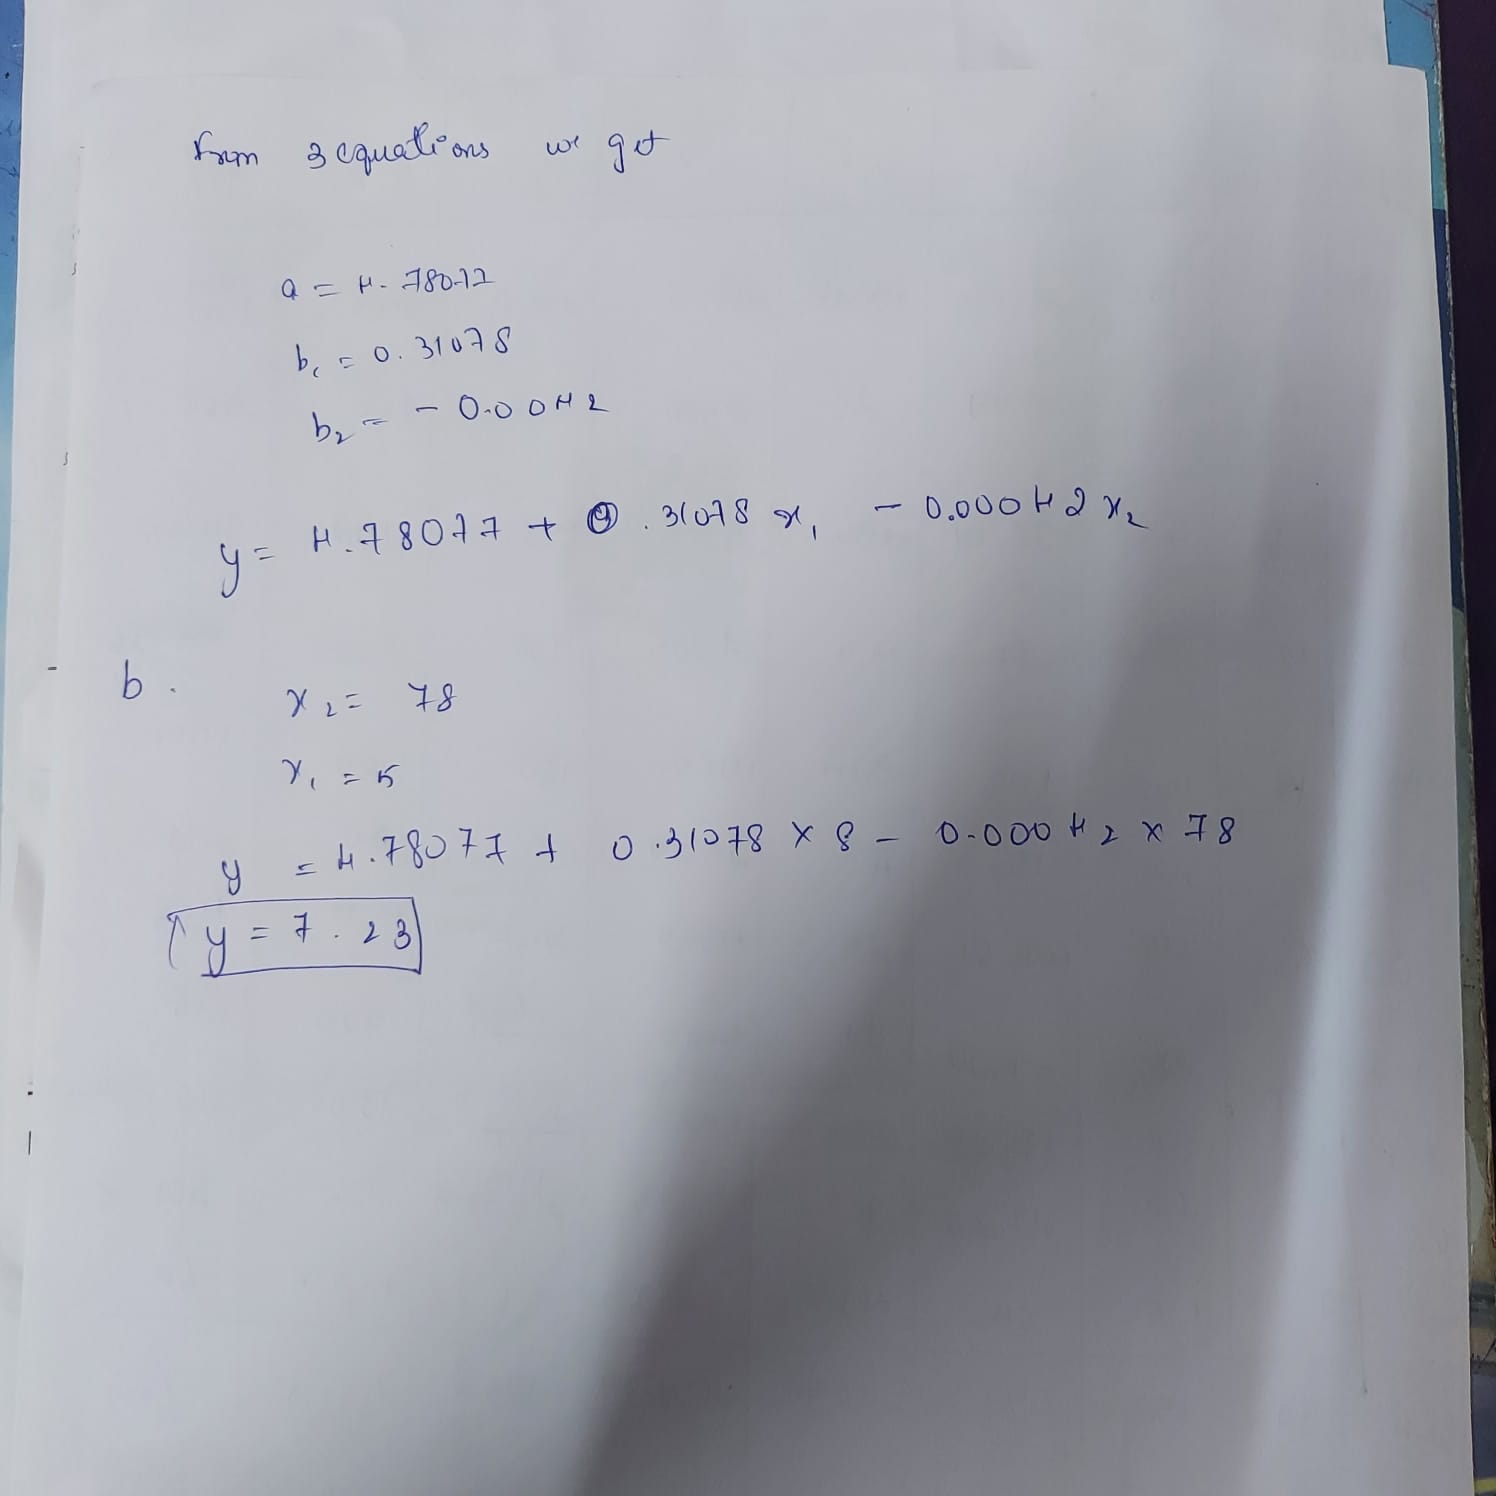 from 3 equations we get
a = 4.78077
b₁ = 0.31078
b₂ = - 0.0042
y = 4.78077 + 0.31078 x₁ - 0.00042 x₂
b.
x₂ = 78
x₁ = 5
y = 4.78077 + 0.31078 × 8 - 0.00042 × 78
y = 7.23